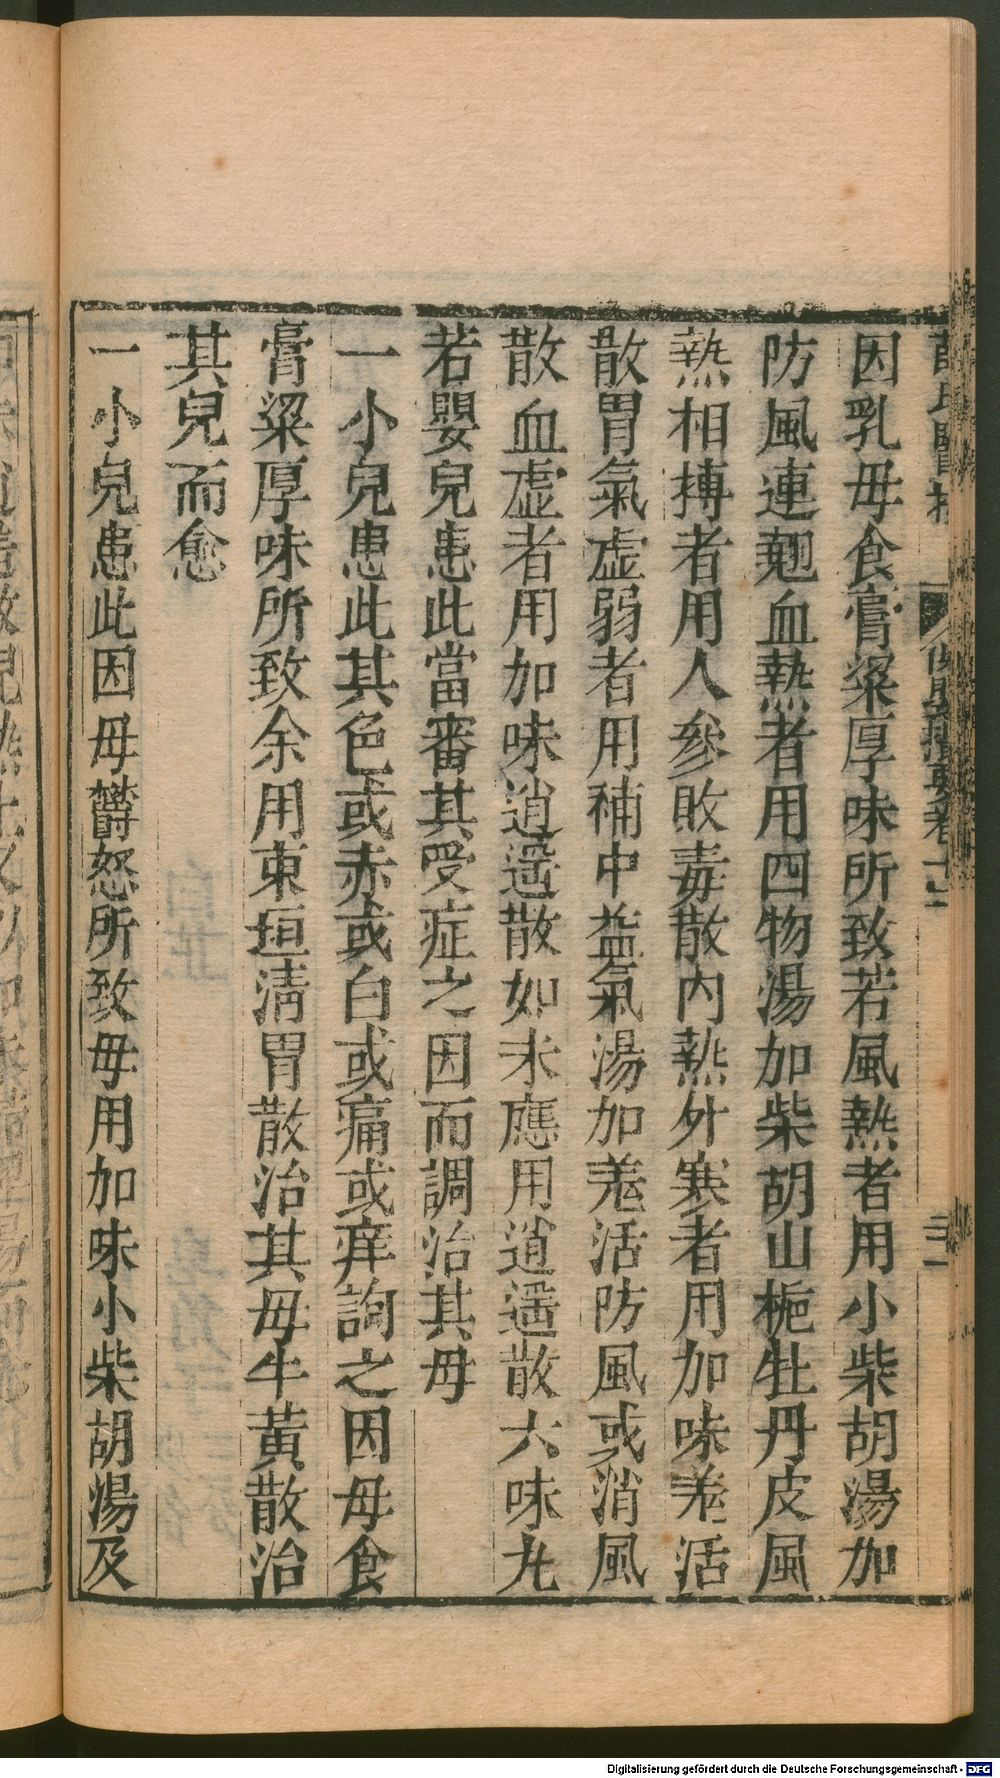 因乳母食膏粱厚味所致若風熱者用小柴胡湯加
防風連翹血熱者用四物湯加柴胡山梔牡丹皮風
熱相搏者用人參敗毒散內熱外寒者用加味羌活
散胃氣虛弱者用補中益氣湯加羌活防風或消風
散血虛者用加味逍遥散如未應用逍遥散六味丸
若嬰兒患此當審其受症之因而調治其母
一小兒患此其色或赤或白或痛或痒詢之因母食
膏粱厚味所致余用東垣清胃散治其母牛黃散治
其兒而愈
一小兒患此因母鬱怒所致母用加味小柴胡湯及
Digitalisierung gefördert durch die Deutsche Forschungsgemeinschaft - DFG